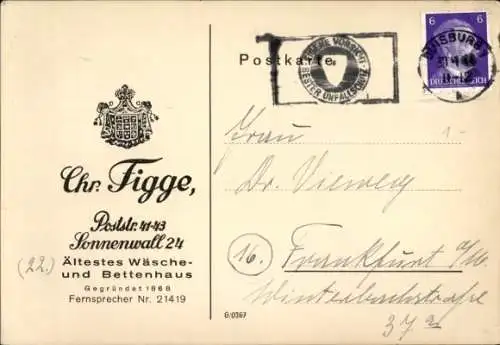 Chr. Figge,
Poststr. 41-43
Sonnenwall 24
(22.)
Ältestes Wäsche-
und Bettenhaus
Gegründet 1868
Fernsprecher Nr. 21419
Postkarte
EIGENE VORSICHT
BESTER UNFALLSCHUTZ
DUISBURG
6 6
DEUTSCHES REICH
1-
Frau
Dr. Vieweg
16. Frankfurt a/M.
Winterbachstraße
37 a
G/0367